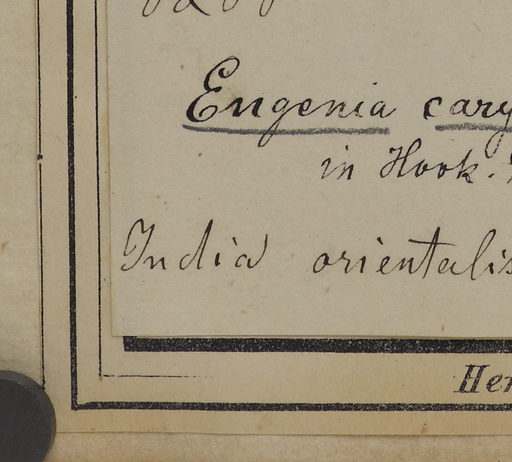 Eugenia cary
in Hook.
India orientalis
Her